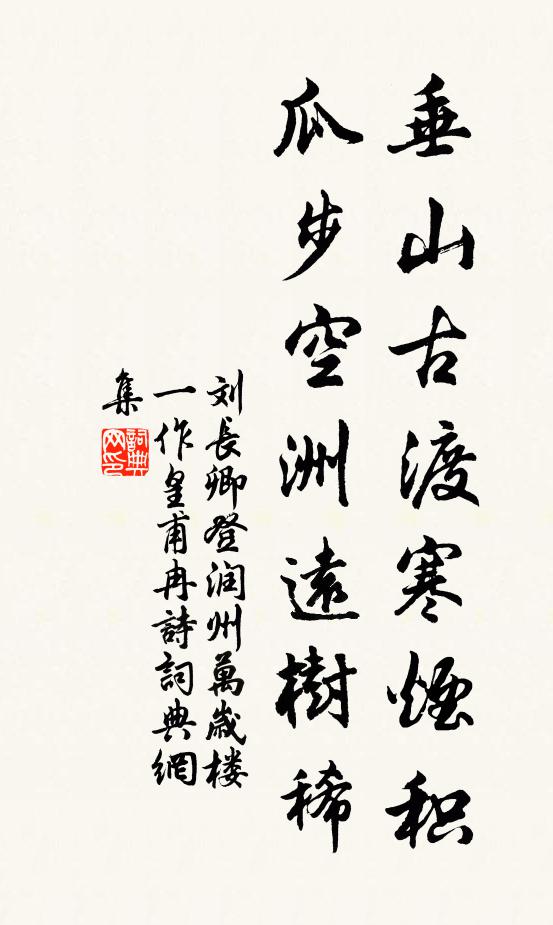 垂山古渡寒煙积
瓜步空洲遠樹稀
刘長卿登润州萬歲楼
一作皇甫冉詩詞典網
集
詞典网印